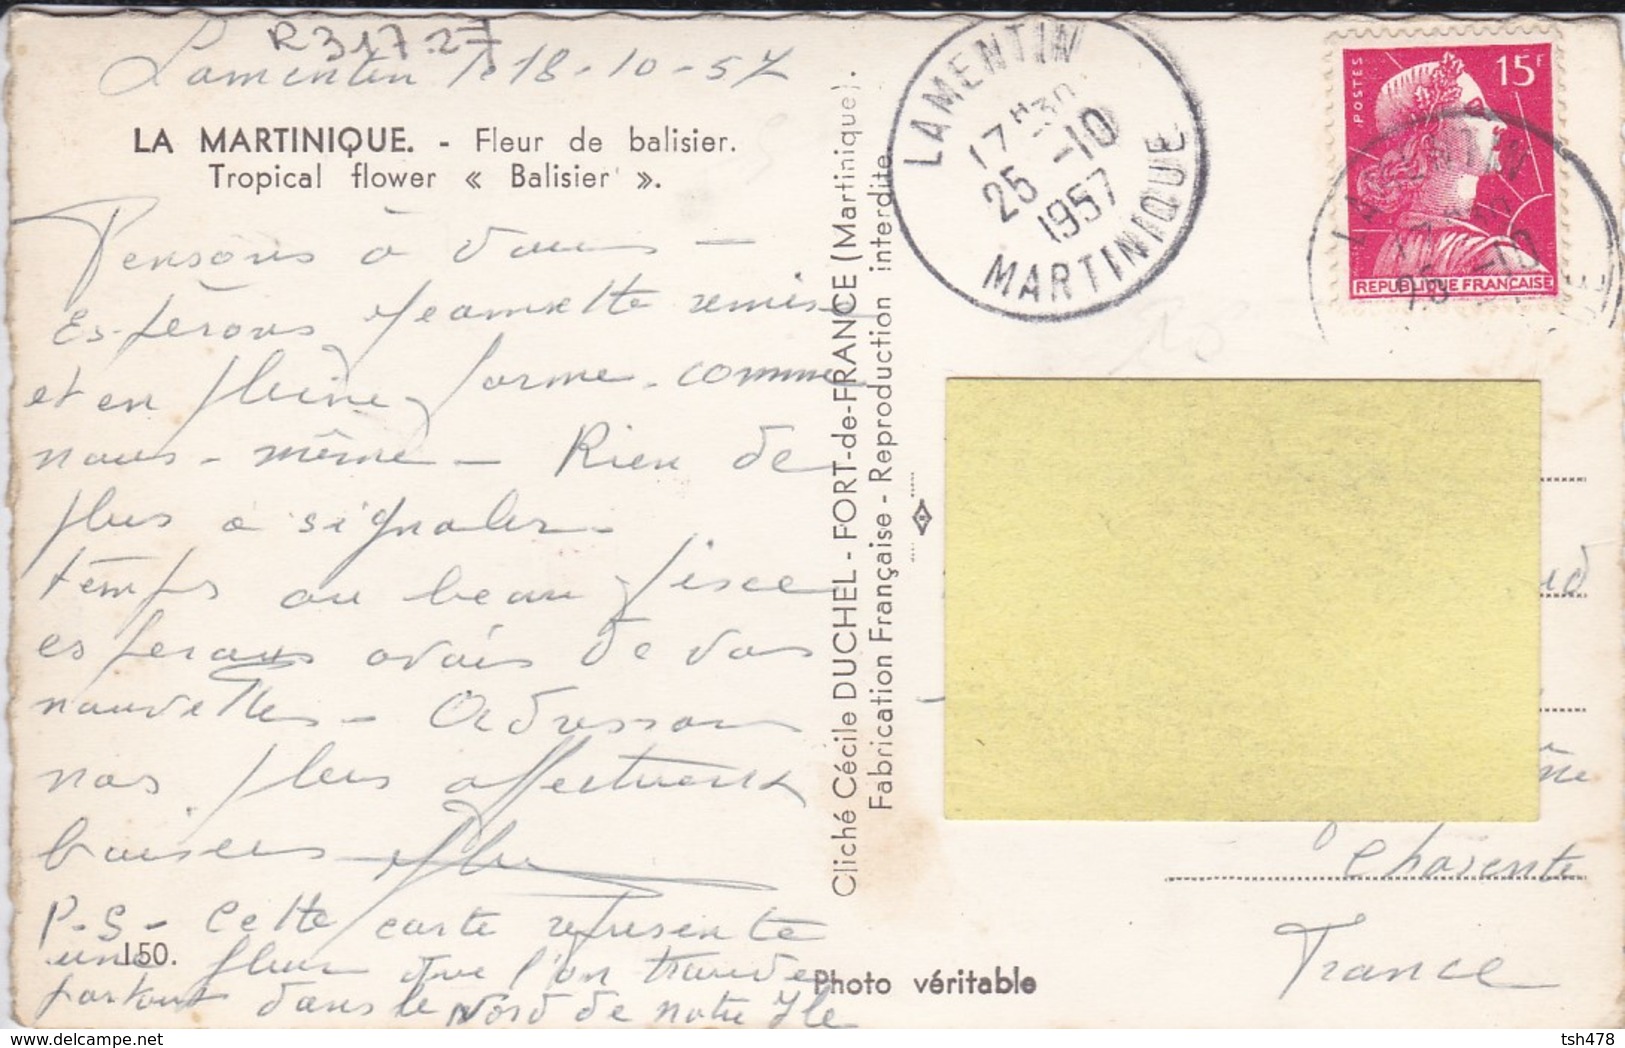 R31727
Lamentin 18-10-57
LA MARTINIQUE. - Fleur de balisier.
Tropical flower « Balisier ».
Pensons à vous -
Espérons Jeannette remise
et en pleine forme - comme
nous-même - Rien de
plus a signaler -
temps au beau fixe
esperons avois de vos
nouvelles - Adressons
nos plus affectueux
baisers
P-S- Cette carte represente
une fleur que l'on trouve
partout dans le Nord de notre Ile
150.
Photo véritable
Cliché Cécile DUCHEL - FORT-de-FRANCE (Martinique).
Fabrication Française - Reproduction interdite
LAMENTIN
17H30
25-10
1957
MARTINIQUE
POSTES
15F
REPUBLIQUE FRANÇAISE
LAMENTIN
17
25-10
Charente
France
tsh478